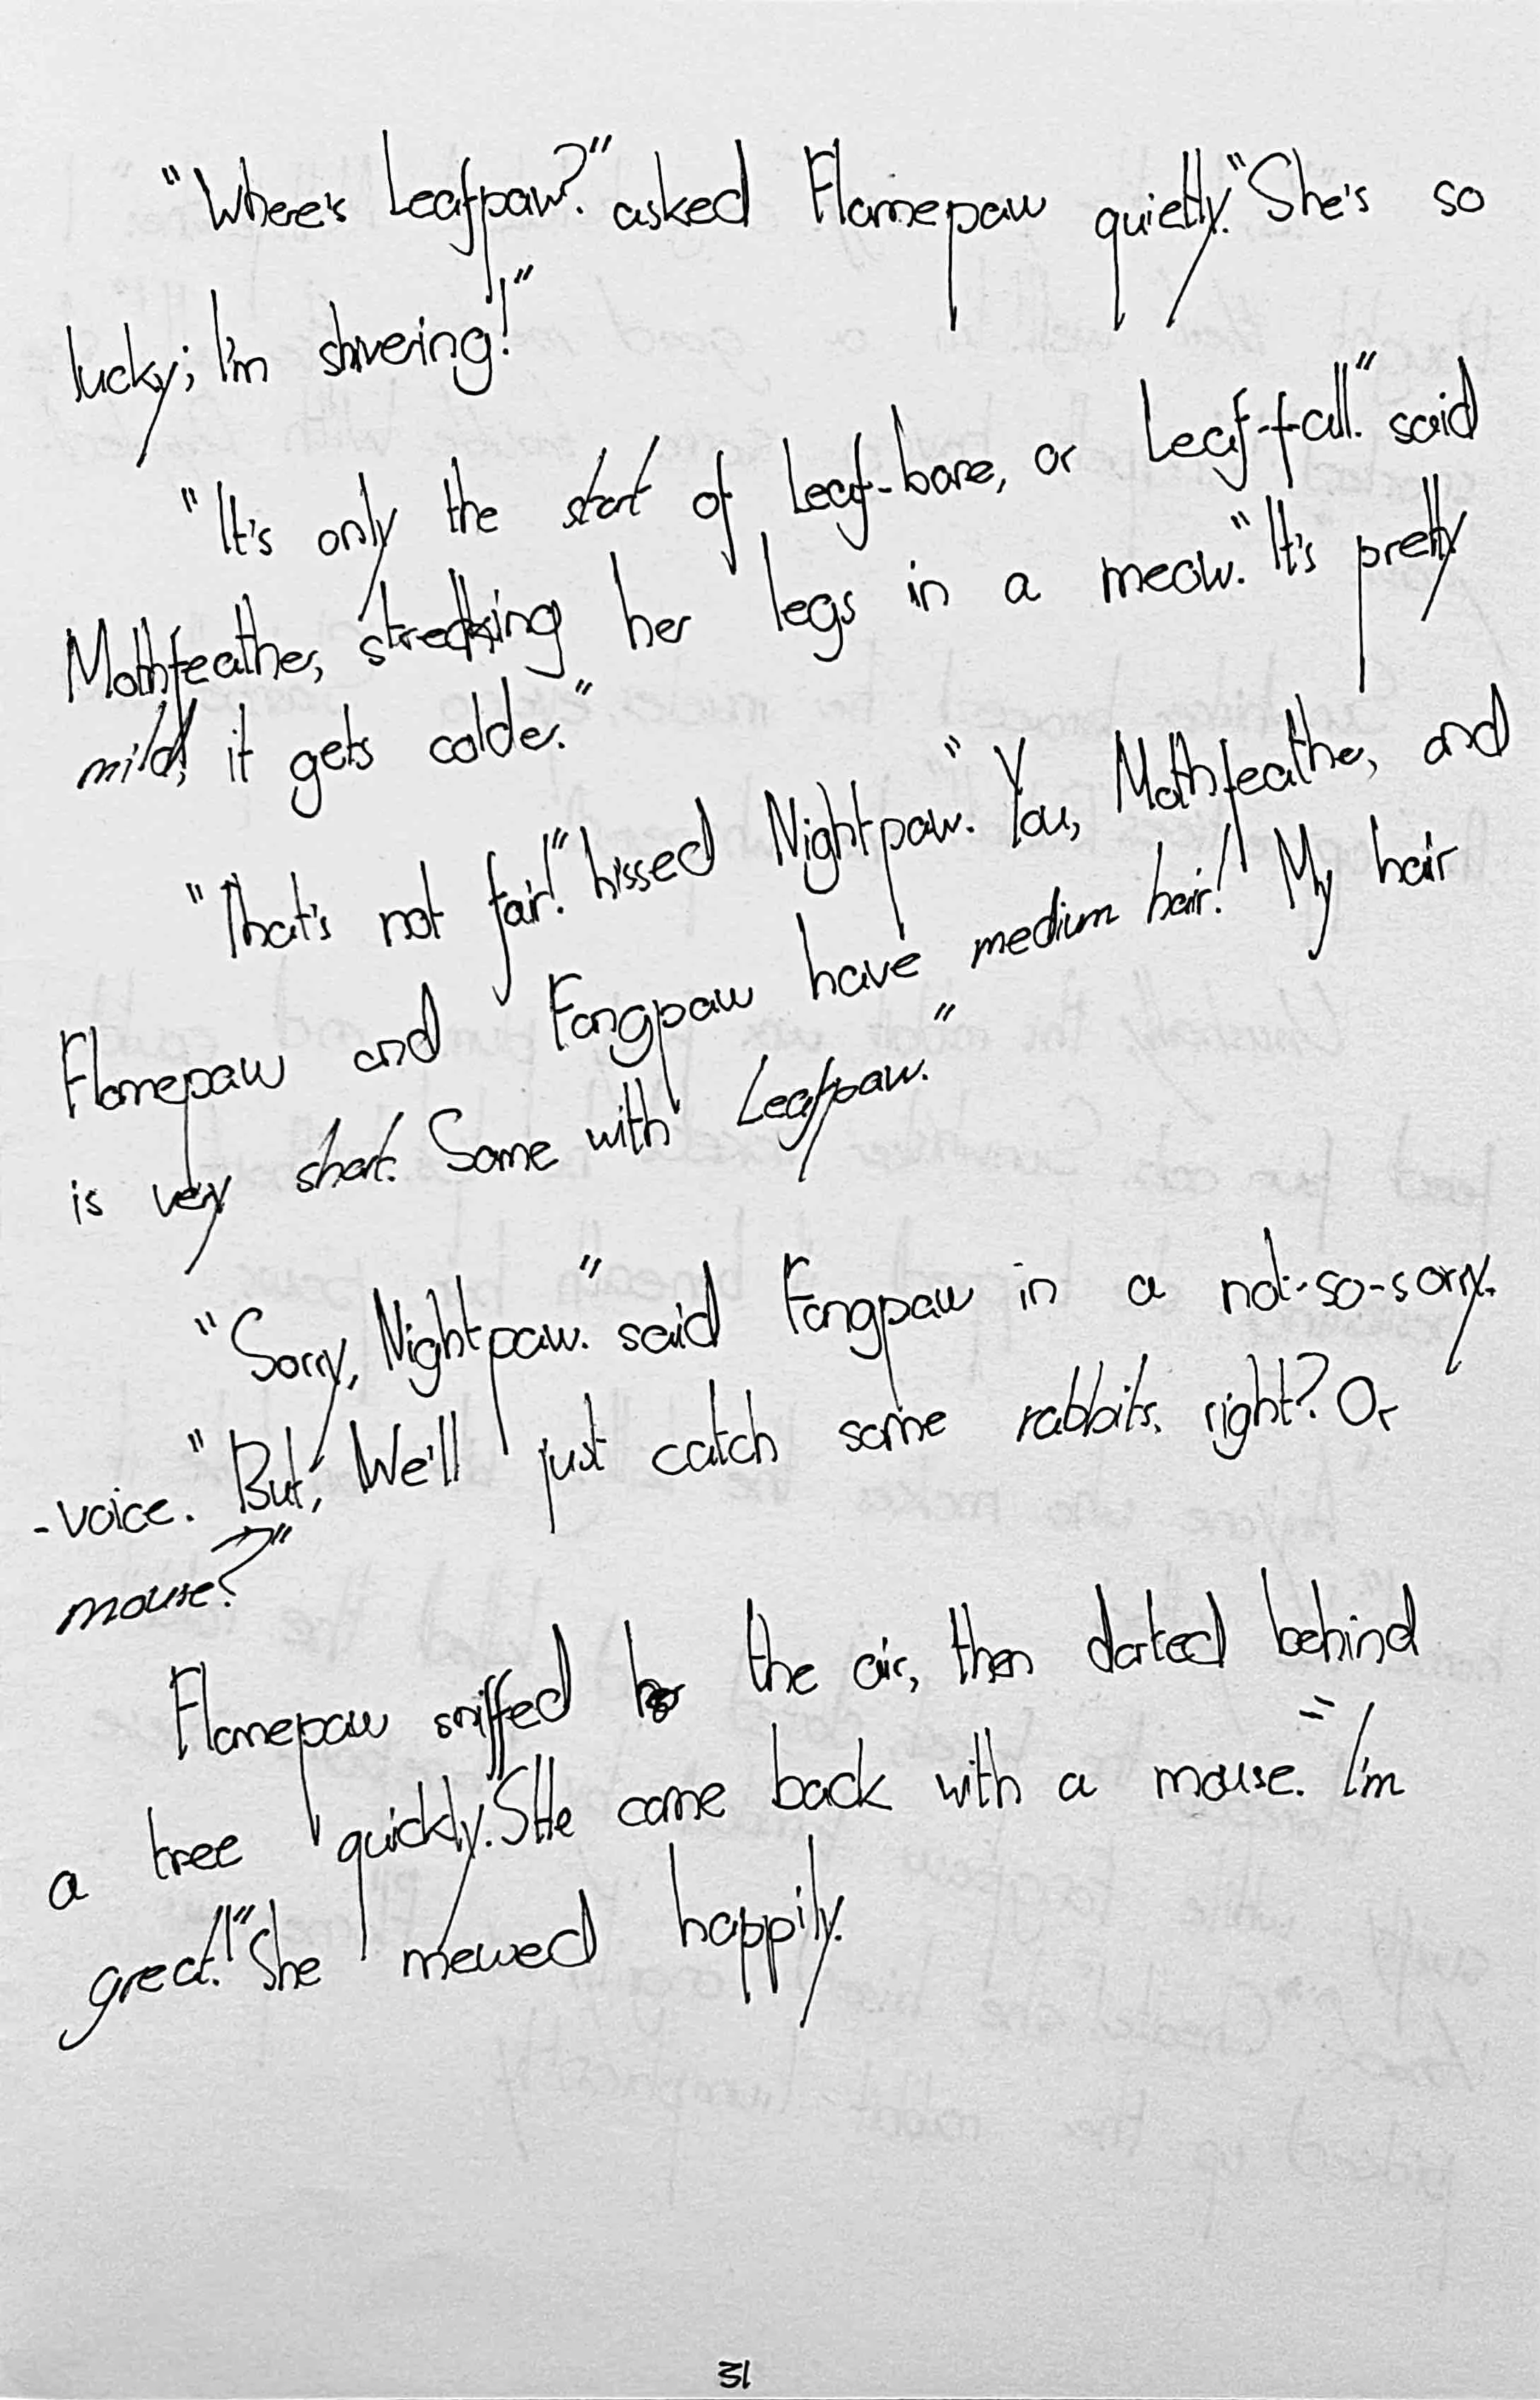 "Where's Leafpaw?" asked Flamepaw quietly. "She's so
lucky; I'm shivering!"
"It's only the start of Leaf-bare, or Leaf-fall." said
Mothfeather, stretching her legs in a meow. "It's pretty
mild, it gets colder."
"That's not fair!" hissed Nightpaw. "You, Mothfeather, and
Flamepaw and Fangpaw have medium hair! My hair
is very short. Same with Leafpaw."
"Sorry, Nightpaw." said Fangpaw in a not-so-sorry.
-voice. "But, We'll just catch some rabbits, right? Or
mouse?"
Flamepaw sniffed the air, then darted behind
a tree quickly. SHe came back with a mouse. "I'm
great!" She mewed happily.
31